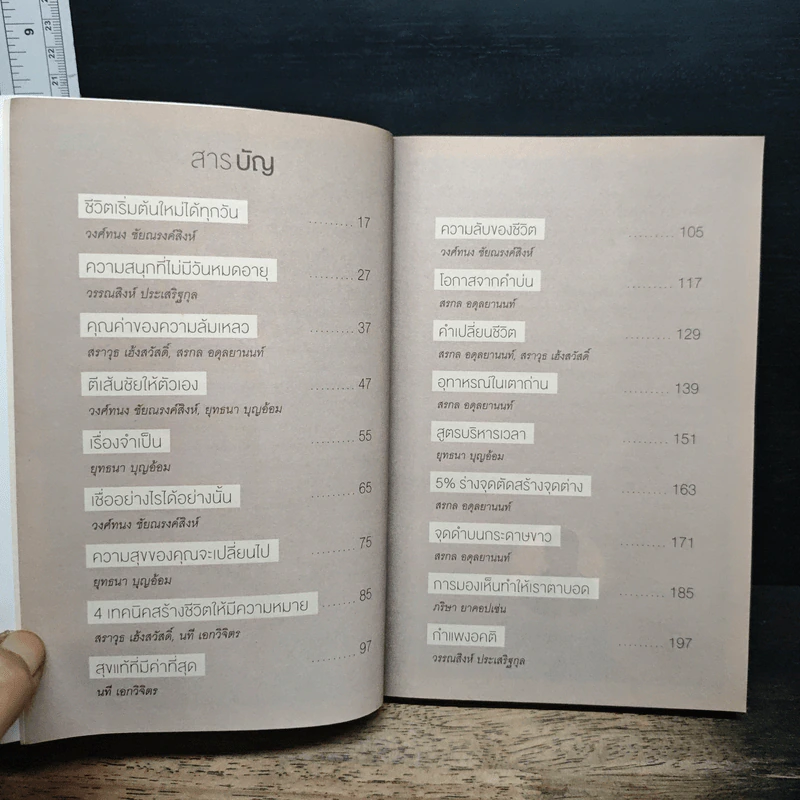 9
23
22
21
สารบัญ
ชีวิตเริ่มต้นใหม่ได้ทุกวัน ......... 17
วงศ์ทนง ชัยณรงค์สิงห์
ความสนุกที่ไม่มีวันหมดอายุ ......... 27
วรรณสิงห์ ประเสริฐกุล
คุณค่าของความล้มเหลว ......... 37
สราวุธ เฮ้งสวัสดิ์, สรกล อดุลยานนท์
ตีเส้นชัยให้ตัวเอง ......... 47
วงศ์ทนง ชัยณรงค์สิงห์, ยุทธนา บุญอ้อม
เรื่องจำเป็น ......... 55
ยุทธนา บุญอ้อม
เชื่ออย่างไรได้อย่างนั้น ......... 65
วงศ์ทนง ชัยณรงค์สิงห์
ความสุขของคุณจะเปลี่ยนไป ......... 75
ยุทธนา บุญอ้อม
4 เทคนิคสร้างชีวิตให้มีความหมาย ...... 85
สราวุธ เฮ้งสวัสดิ์, นที เอกวิจิตร
สุขแท้ที่มีค่าที่สุด ......... 97
นที เอกวิจิตร
ความลับของชีวิต ......... 105
วงศ์ทนง ชัยณรงค์สิงห์
โอกาสจากคำบ่น ......... 117
สรกล อดุลยานนท์
คำเปลี่ยนชีวิต ......... 129
สรกล อดุลยานนท์, สราวุธ เฮ้งสวัสดิ์
อุทาหรณ์ในเตาถ่าน ......... 139
สรกล อดุลยานนท์
สูตรบริหารเวลา ......... 151
ยุทธนา บุญอ้อม
5% ร่างจุดตัดสร้างจุดต่าง ......... 163
สรกล อดุลยานนท์
จุดดำบนกระดาษขาว ......... 171
สรกล อดุลยานนท์
การมองเห็นทำให้เราตาบอด ......... 185
ภริษา ยาคอปเซ่น
กำแพงอคติ ......... 197
วรรณสิงห์ ประเสริฐกุล